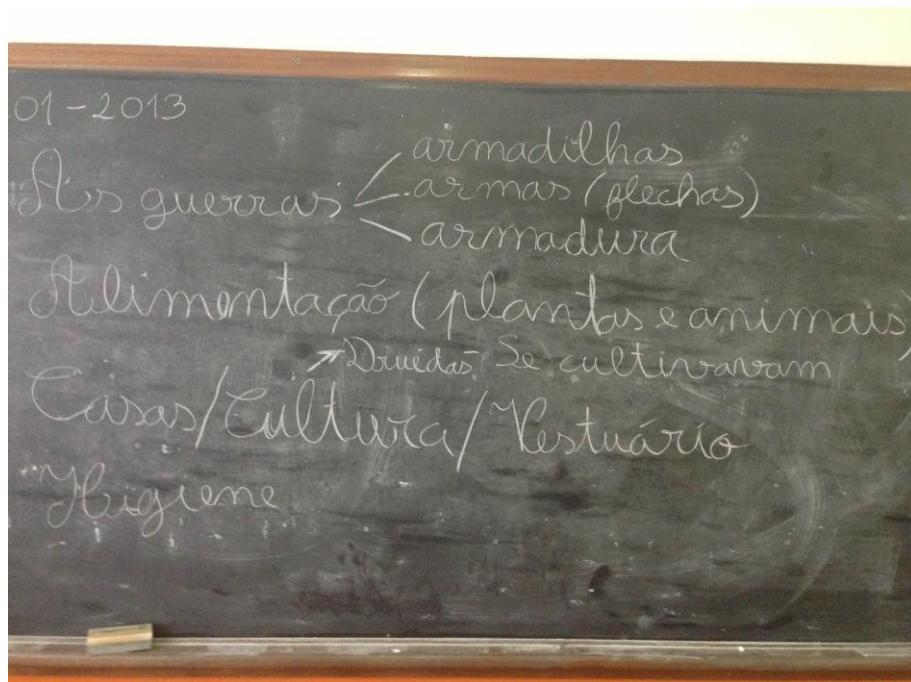 01-2013
armadilhas
As guerras armas (flechas)
armadura
Alimentação (plantas e animais)
Druidas Se cultivavam
Casas/Cultura/Vestuário
Higiene